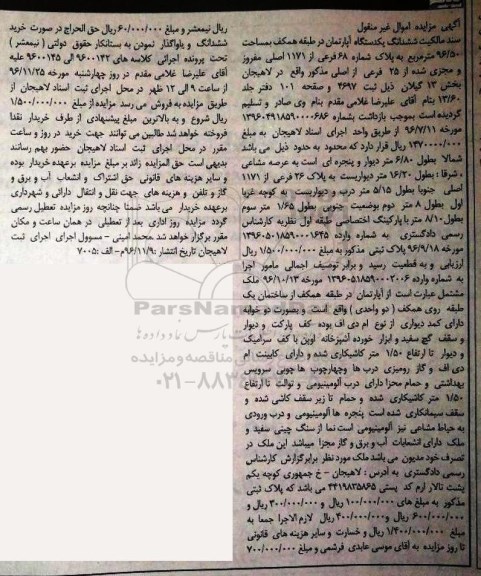 آگهی مزایده اموال غیر منقول
سند مالکیت ششدانگ یکدستگاه آپارتمان در طبقه همکف بمساحت
۹۶/۵۰ مترمربع به پلاک شماره ۶۸ فرعی از ۱۱۷۱ اصلی مفروز
و مجزی شده از ۲۵ فرعی از اصلی مذکور واقع در لاهیجان
بخش ۱۳ گیلان ذیل ثبت ۴۶۹۷ و صفحه ۱۰۱ دفتر جلد
۱۳/۶۰ بنام آقای علیرضا غلامی مقدم بنام وی صادر و تسلیم
گردیده است بموجب بازداشت بشماره ۱۳۹۶۰۴۹۱۸۵۹۰۰۰۶۸۶
مورخه ۹۶/۷/۱۱ از طریق واحد اجرای اسناد لاهیجان به مبلغ
۱۴۷۰۰۰۰۰۰۰ ریال قرار دارد که محدود به حدود ذیل می باشد
شمالا بطول ۶/۸۰ متر دیوار و پنجره ای است به عرصه مشاعی
، شرقا : بطول ۱۶/۲۰ متر دیواریست به پلاک ۲۶ فرعی از ۱۱۷۱
اصلی جنوبا بطول ۵/۱۵ متر درب و دیواریست به کوچه غربا
اول بطول ۸ متر دوم بوضعیت جنوبی بطول ۱/۶۵ متر سوم
بطول ۸/۱۰ متر با پارکینگ اختصاصی طبقه اول نظریه کارشناس
رسمی دادگستری به شماره وارده ۱۳۹۶۰۵۰۱۸۵۹۰۰۰۱۶۴۵
مورخه ۹۶/۹/۱۸ پلاک ثبتی مذکور به مبلغ ۱/۵۰۰/۰۰۰/۰۰۰ ریال
ارزیابی و به قطعیت رسید و برابر توصیف اجمالی مامور اجرا
به شماره وارده ۱۳۹۶۰۵۱۸۵۹۰۰۰۲۰۰۶ مورخه ۹۶/۱۰/۱۳ ملک
مشتمل عبارت است از آپارتمان در طبقه همکف از ساختمان یک
طبقه روی همکف ( دو واحدی ) واقع است و بصورت دو خوابه
دارای کمد دیواری از نوع ام دی اف بوده کف پارکت و دیوار
و سقف گچ سفید و ابزار خورده آشپزخانه اوپن با کف سرامیک
و دیوار تا ارتفاع ۱/۵۰ متر کاشیکاری شده و دارای کابینت ام
دی اف و گاز رومیزی درب ها وچهارچوب ها چوبی سرویس
بهداشتی و حمام مجزا دارای درب آلومینیومی و توالت تا ارتفاع
۱/۵۰ متر کاشیکاری شده و حمام تا زیر سقف کاشی شده و
سقف سیمانکاری شده است پنجره ها آلومینیومی و درب ورودی
به حیاط مشاعی نیز آلومینیومی است نما از سنگ چینی سفید و
ملک دارای انشعابات آب و برق و گاز مجزا میباشد این ملک در
تصرف خود مدیون می باشد ملک مورد نظر برابر گزارش کارشناس
رسمی دادگستری به آدرس : لاهیجان – خ جمهوری کوچه یکم
پشت تالار ارم کد پستی ۴۴۱۹۸۳۵۸۶۵ می باشد که پلاک ثبتی
مذکور به مبلغ های ۱۰۰/۰۰۰/۰۰۰ ریال و ۳۰۰/۰۰۰/۰۰۰ ریال و
۶۰۰/۰۰۰/۰۰۰ ریال و ۴۰۰/۰۰۰/۰۰۰ ریال لازم الاجرا جمعا به
مبلغ ۱/۴۰۰/۰۰۰/۰۰۰ ریال و خسارت و سایر هزینه های قانونی
تا روز مزایده به آقای موسی عابدی فرشمی و مبلغ ۷۰۰/۰۰۰/۰۰۰
ریال نیمعشر و مبلغ ۶۰/۰۰۰/۰۰۰ ریال حق الحراج در صورت خرید
ششدانگ و یاواگذار نمودن به بستانکار حقوق دولتی ( نیمعشر )
تحت پرونده اجرائی کلاسه های ۹۶۰۰۱۴۲ الی ۹۶۰۰۱۴۵ علیه
آقای علیرضا غلامی مقدم در روز چهارشنبه مورخه ۹۶/۱۱/۲۵
از ساعت ۹ الی ۱۲ ظهر در محل اجرای ثبت اسناد لاهیجان از
طریق مزایده به فروش می رسد مزایده از مبلغ ۱/۵۰۰/۰۰۰/۰۰۰
ریال شروع و به بالاترین مبلغ پیشنهادی از طرف خریدار نقدا
فروخته خواهد شد طالبین می توانند جهت خرید در روز و ساعت
مقرر در محل اجرای ثبت اسناد لاهیجان حضور بهم رسانند
بدیهی است حق المزایده زائد بر مبلغ مزایده برعهده خریدار بوده
و سایر هزینه های قانونی حق اشتراک و انشعاب آب و برق و
گاز و تلفن و هزینه های جهت نقل و انتقال دارائی و شهرداری
برعهده خریدار می باشد ضمنا چنانچه روز مزایده تعطیل رسمی
گردد مزایده روز اداری بعد از تعطیلی در همان ساعت و مکان
مقرر برگزار خواهد شد .محمد امینی – مسوول اجرای اجرای ثبت
لاهیجان تاریخ انتشار :۹۶/۱۱/۹م- الف :۷۰۰۵
ParsNamadData
پایگاه اطلاع رسانی مناقصه و مزایده